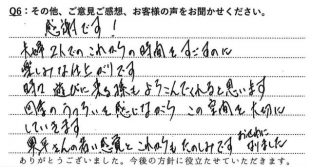 Q6：その他、ご意見ご感想、お客様の声をお聞かせください。
感謝です！
夫婦2人でのこれからの時間をすごすのに
楽しみな仕上がりです
時々遊びに来る孫もよろこんでくれると思います
四季のうつろいを感じながらこの空間を大切に
していきます
おせわに
さんの高い感覚とこれからもたのしみです
なりました
ありがとうございました。今後の方針に役立たせていただきます。